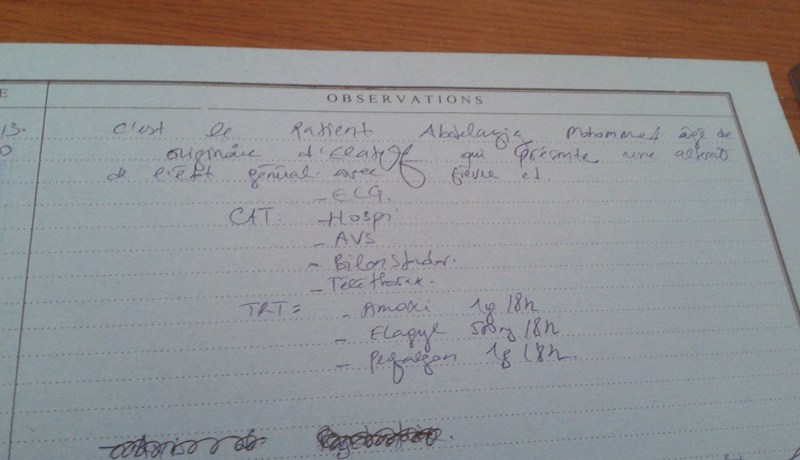 E
OBSERVATIONS
13. c'est le Patient Abdelaziz Mohammed âgé de
0 originaire d' qui présente une alterat
de l'etat général avec fievre et
- ECG.
CAT: - Hospi
- AVS
- Bilan Standar.
- Telethorax.
TRT = - Amoxi 1g /8h
- Flagyl 500mg /8h
- Perfalgan 1g /8h.